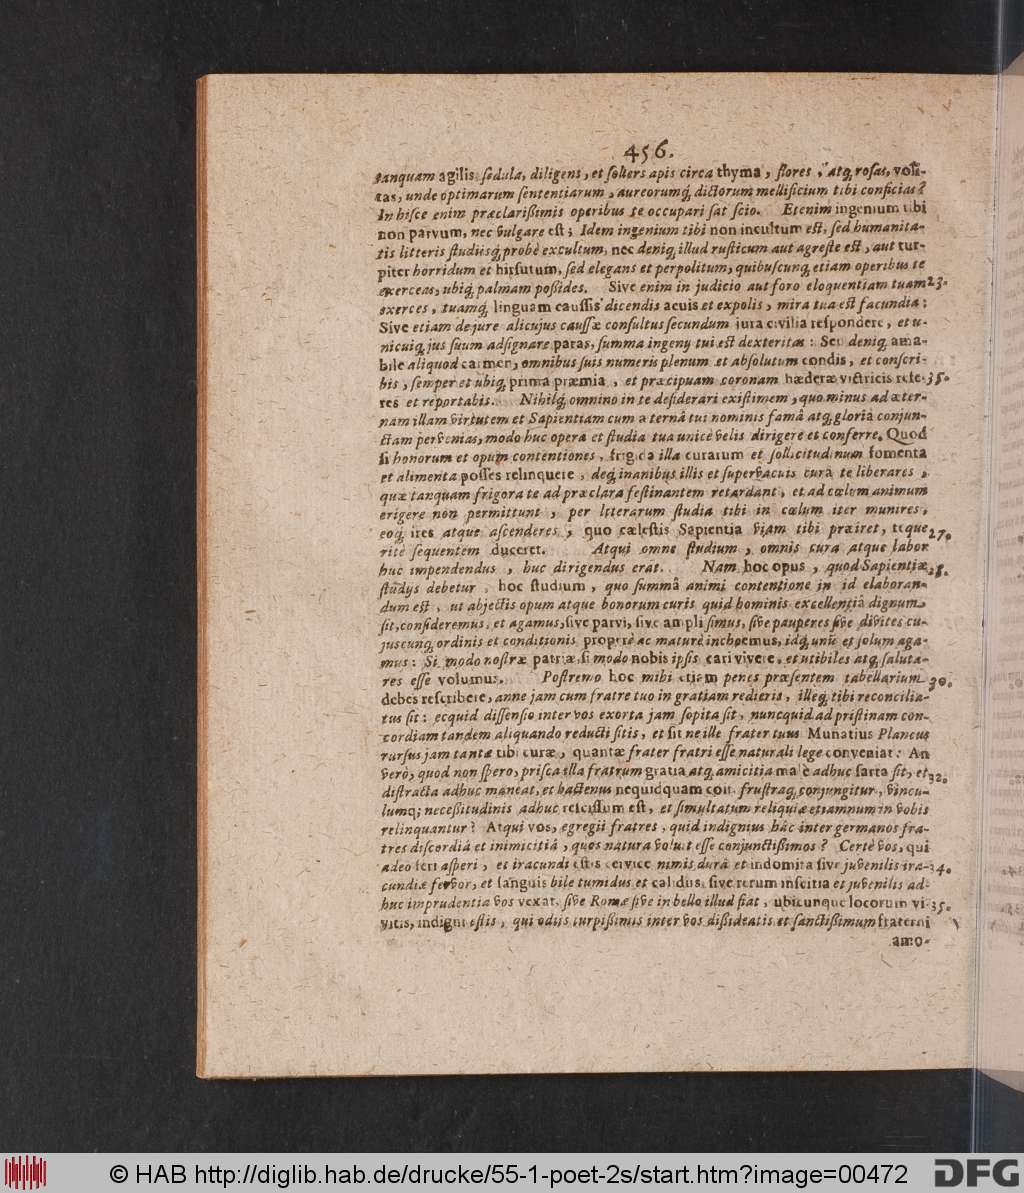 456.
tanquam agilis, sedula, diligens, et solers apis circa thyma, flores, atq; rosas, voli-
tas, unde optimarum sententiarum, aureorumq; dictorum mellificium tibi conficias?
In hisce enim præclarißimis operibus te occupari sat scio. Etenim ingenium tibi
non parvum, nec vulgare est; Idem ingenium tibi non incultum est, sed humanita-
tis litteris studiisq; probè excultum, nec deniq; illud rusticum aut agreste est, aut tur-
piter horridum et hirsutum, sed elegans et perpolitum, quibuscunq; etiam operibus te
exerceas, ubiq; palmam poßides. Sive enim in judicio aut foro eloquentiam tuam 23.
exerces, tuamq; linguam caussis dicendis acuis et expolis, mira tua est facundia:
Sive etiam de jure alicujus caussæ consultus secundum jura civilia respondere, et u-
nicuiq; jus suum adsignare paras, summa ingenij tui est dexteritas: Seu deniq; ama-
bile aliquod carmen, omnibus suis numeris plenum et absolutum condis, et conscri-
bis, semper et ubiq; prima præmia, et præcipuam coronam hæderæ victricis refe- 35.
res et reportabis. Nihilq; omnino in te desiderari existimem, quo minus ad æter-
nam illam virtutem et Sapientiam cum æterna tui nominis famâ atq; gloria conjun-
ctam pervenias, modo huc opera et studia tua unicè velis dirigere et conferre. Quod
si honorum et opum contentiones, frigida illa curarum et sollicitudinum fomenta
et alimenta posses relinquere, deq; inanibus illis et supervacuis cura te liberares,
quæ tanquam frigora te ad præclara festinantem retardant, et ad cœlum animum
erigere non permittunt, per litterarum studia tibi in cœlum iter munires,
eoq; ires atque ascenderes, quo cœlestis Sapientia viam tibi præiret, teque 27.
ritè sequentem duceret. Atqui omne studium, omnis cura atque labor
huc impendendus, huc dirigendus erat. Nam hoc opus, quod Sapientiæ 28.
studijs debetur, hoc studium, quo summâ animi contentione in id elaboran-
dum est, ut abjectis opum atque bonorum curis quid hominis excellentiâ dignum
sit, consideremus, et agamus, sive parvi, sive amplißimus, sive pauperes sive divites cu-
juscunq; ordinis et conditionis properè ac maturè inchoemus, idq; unū et solum aga-
mus: Si modo nostræ patriæ, si modo nobis ipsis cari vivere, et utibiles atq; saluta-
res esse volumus. Postremo hoc mihi etiam penes præsentem tabellarium 30.
debes rescribere, anne jam cum fratre tuo in gratiam redieris, illeq; tibi reconcilia-
tus sit: ecquid dissensio inter vos exorta jam sopita sit, nuncquid ad pristinam con-
cordiam tandem aliquando reducti sitis, et sit ne ille frater tuus Munatius Plancus
rursus jam tantæ tibi curæ, quantæ frater fratri esse naturali lege conveniat: An
verò, quod non spero, prisca illa fratrum gratia atq; amicitia male adhuc sarta sit, et 32.
distracta adhuc maneat, et hactenus nequidquam coit, frustraq; conjungitur, vincu-
lumq; neceßitudinis adhuc rescissum est, et simultatum reliquiæ etiamnum in vobis
relinquantur? Atqui vos, egregii fratres, quid indignius hâc inter germanos fra-
tres discordiâ et inimicitiâ, quos natura voluit esse conjunctißimos? Certè vos, qui
adeo feri asperi, et iracundi estis cervice nimis durâ et indomita sive juvenilis ira- 34.
cundiæ fervor, et sanguis bile tumidus et calidus, sive rerum inscitia et juvenilis ad-
huc imprudentia vos vexat, sive Romæ sive in bello illud fiat, ubicunque locorum vi- 35.
vitis, indigni estis, qui odiis turpißimis inter vos dißideatis et sanctißimum fraterni
amo-
© HAB http://diglib.hab.de/drucke/55-1-poet-2s/start.htm?image=00472
DFG